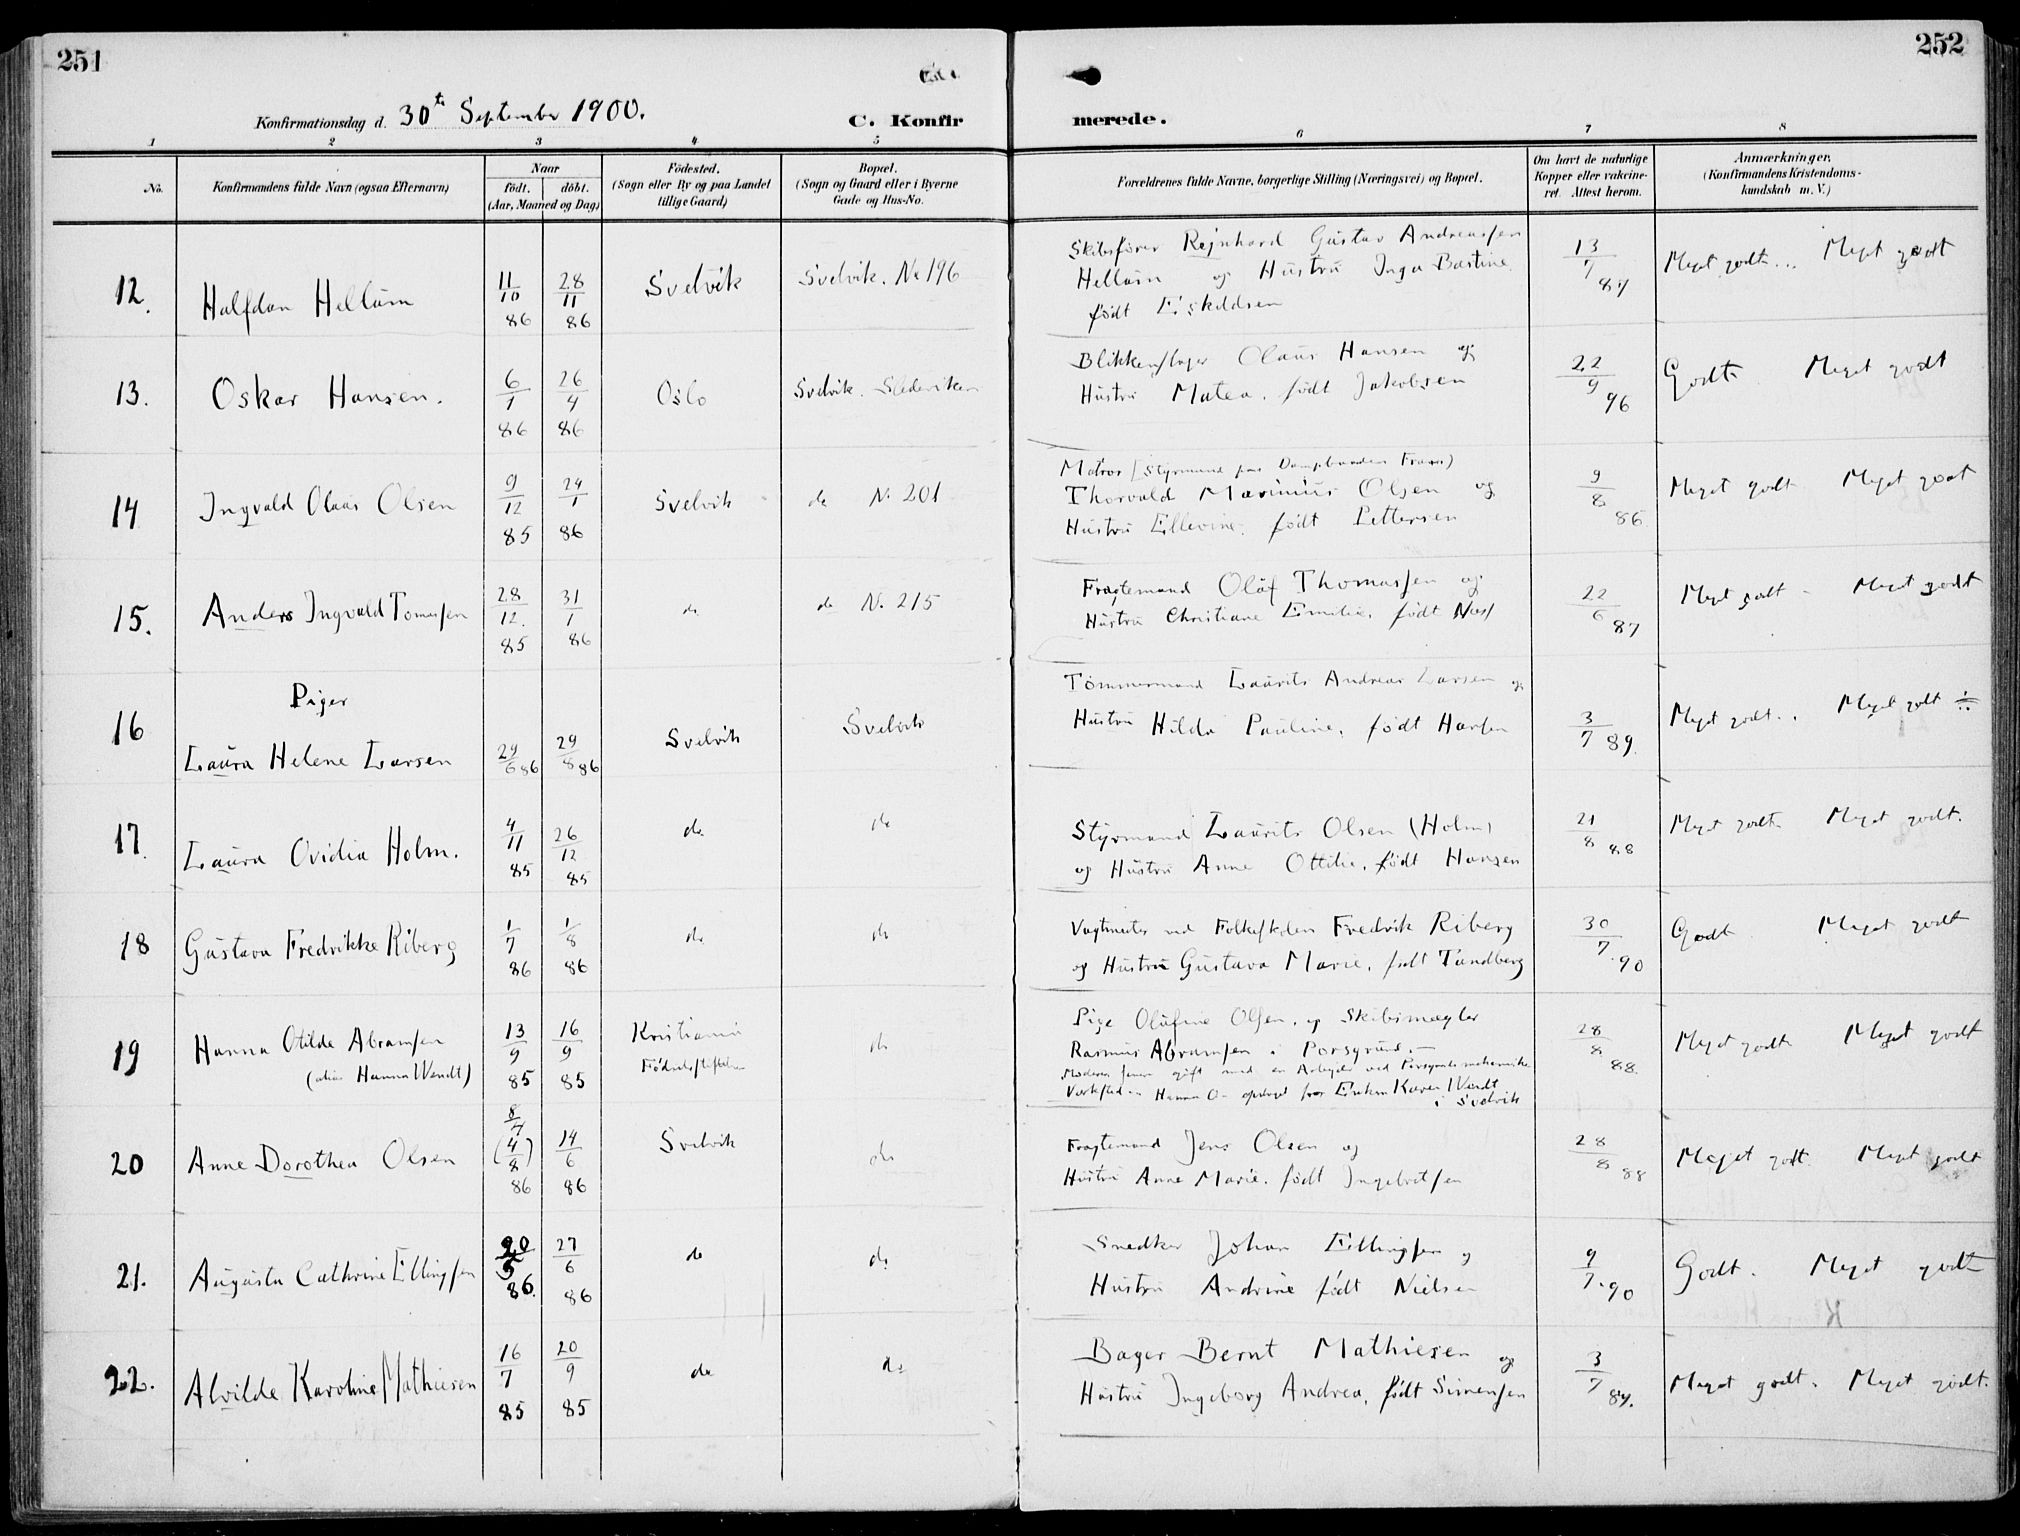 251
252
Konfirmationsdag d. 30te September 1900.
C. Konfirmerede.
1 2 3 4 5 6 7 8
No.
Konfirmandens fulde Navn (ogsaa Efternavn)
Naar
födt. döbt.
(Aar, Maaned og Dag)
Födested.
(Sogn eller By og paa Landet
tillige Gaard)
Bopæl.
(Sogn og Gaard eller i Byerne
Gade og Hus-No.
Forældrenes fulde Navne, borgerlige Stilling (Næringsvei) og Bopæl.
Om havt de naturlige
Kopper eller vakcine-
ret. Attest herom.
Anmærkninger.
(Konfirmandens Kristendoms-
kundskab m. V.)
12. Halfdan Hellum 11/10 86 28/11 86 Svelvik Svelvik. No 196
Skibsfører Rejnhard Gustav Andreassen
Hellum og Hustru Inga Bastine
født Eskildsen
13/7 87 Meget godt. Meget godt
13. Oskar Hansen. 6/1 86 26/4 86 Oslo Svelvik.
Blikkenslager Olaus Hansen og
Hustru Matea. født Jakobsen
22/9 96 Godt Meget godt
14 Ingvald Olaus Olsen 9/12 85 24/1 86 Svelvik do N. 201
Matros (Styrmand paa Fram)
Thorvald Maximius Olsen og
Hustru Ellevine. født Pettersen
9/8 86 Meget godt Meget godt
15. Anders Ingvald Tomassen 28/12. 85 31/1 86 do do N. 215
Fragtemand Olaf Thomassen og
Hustru Christiane Emilie, født Næss
22/6 87 Meget godt Meget godt
Piger
16 Laura Helene Larsen 29/6 86 29/8 86 Svelvik Svelvik
Tømmermand Laurits Andreas Larsen og
Hustru Hilda Pauline, født Hansen
3/7 89. Meget godt. Meget godt ÷
17. Laura Ovidia Holm. 4/11 85 26/12 85 do do
Styrmand Laurits Olsen (Holm)
og Hustru Anne Ottilie, født Hansen
21/8 88 Meget godt Meget godt.
18 Gustava Fredrikke Riberg 1/7 86 1/8 86 do do
Vagtmester ved Folkeskolen Fredrik Riberg
og Hustru Gustava Marie, født Tandberg
30/7 90 Godt Meget godt
19 Hanna Otilde Abramsen
(alias Hanna Wendt)
13/9 85 16/9 85 Kristiania
Fødselsstiftelsen
do
Pige Olufine Olsen. og Skibsmægler
Rasmus Abramsen i Porsgrund. —
Moderen senere gift med en Arbeider ved Porsgrunds mekaniske
Værksted. Hanna O. opdraget hos Enken Karen Wendt
i Svelvik
28/8 88. Meget godt Meget godt
20 Anne Dorothea Olsen 8/7 (4/8) 86 14/6 86 Svelvik do
Fragtemand Jens Olsen og
Hustru Anne Marie. født Ingebretsen
28/8 88 Meget godt. Meget godt
21. Augusta Cathrine Ellingsen 20/5 86. 27/6 86 do do
Snedker Johan Ellingsen og
Hustru Andrine født Nielsen
9/7. 90 Godt. Meget godt
22. Alvilde Karoline Mathiesen 16/7 85 20/9 85 do do
Bager Bernt Mathiesen og
Hustru Ingeborg Andrea, født Simensen
3/7 87. Meget godt. Meget godt.